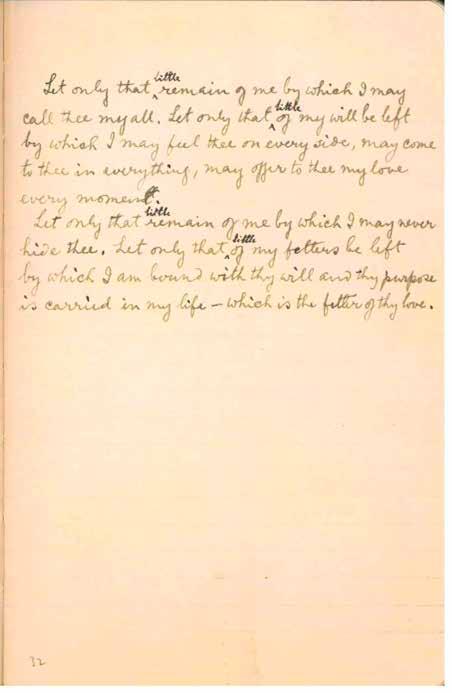 Let only that little remain of me by which I may
call thee my all. Let only that little of my will be left
by which I may feel thee on every side, may come
to thee in everything, may offer to thee my love
every moment.
Let only that little remain of me by which I may never
hide thee. Let only that little of my fetters be left
by which I am bound with thy will and thy purpose
is carried in my life – which is the fetter of thy love.
32